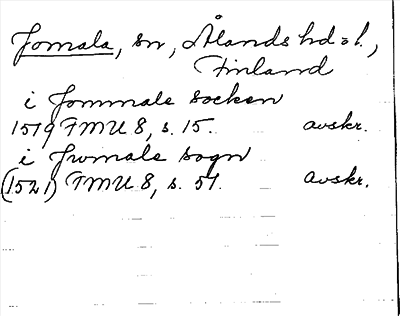 Jomala, sn, Ålands hd o l.,
Finland
i Jommale socken
1519 FMU 8, s. 15. avskr.
i Jwmale sogn
(1521) FMU 8, s. 51. avskr.